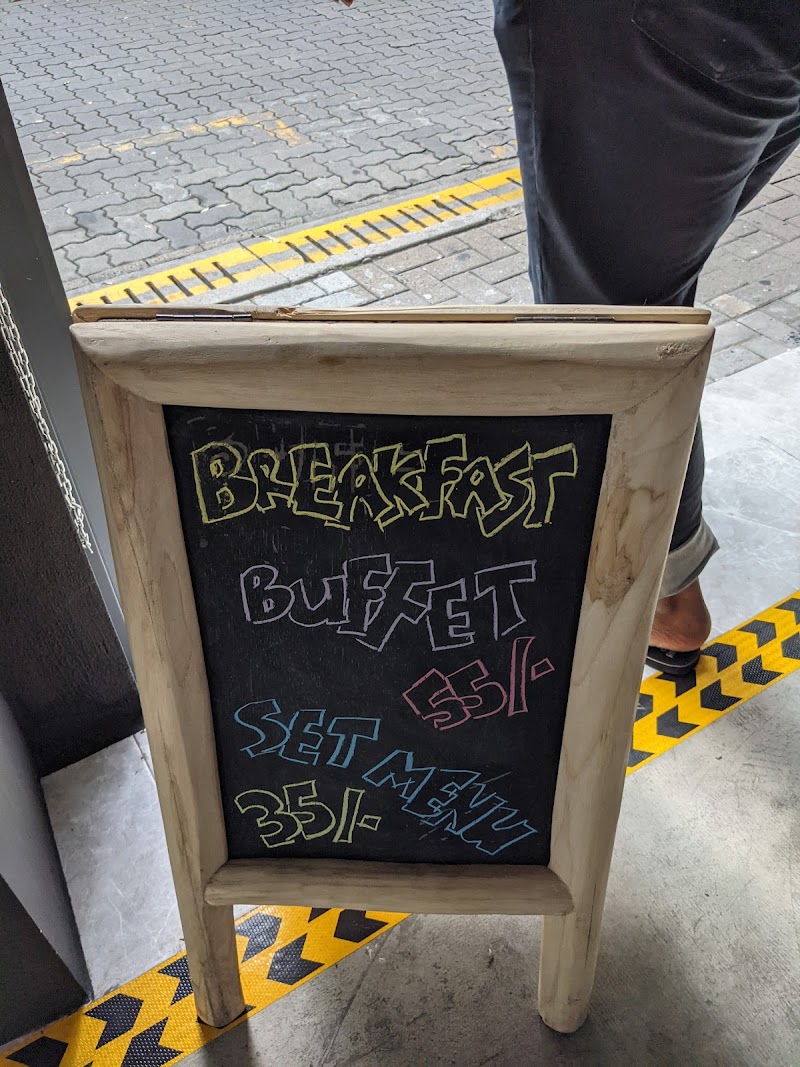 BREAKFAST
BUFFET
55/-
SET MENU
35/-